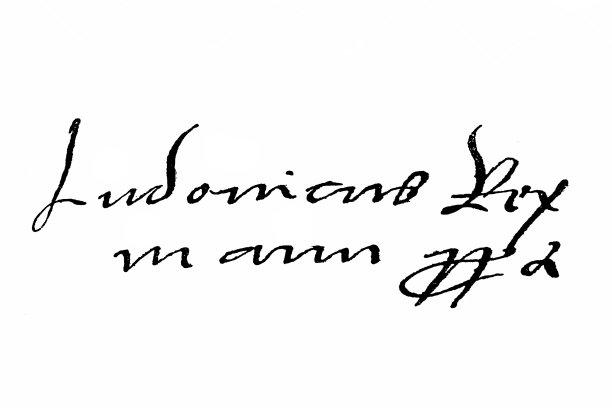 Ludouicus Rex
manu ppa